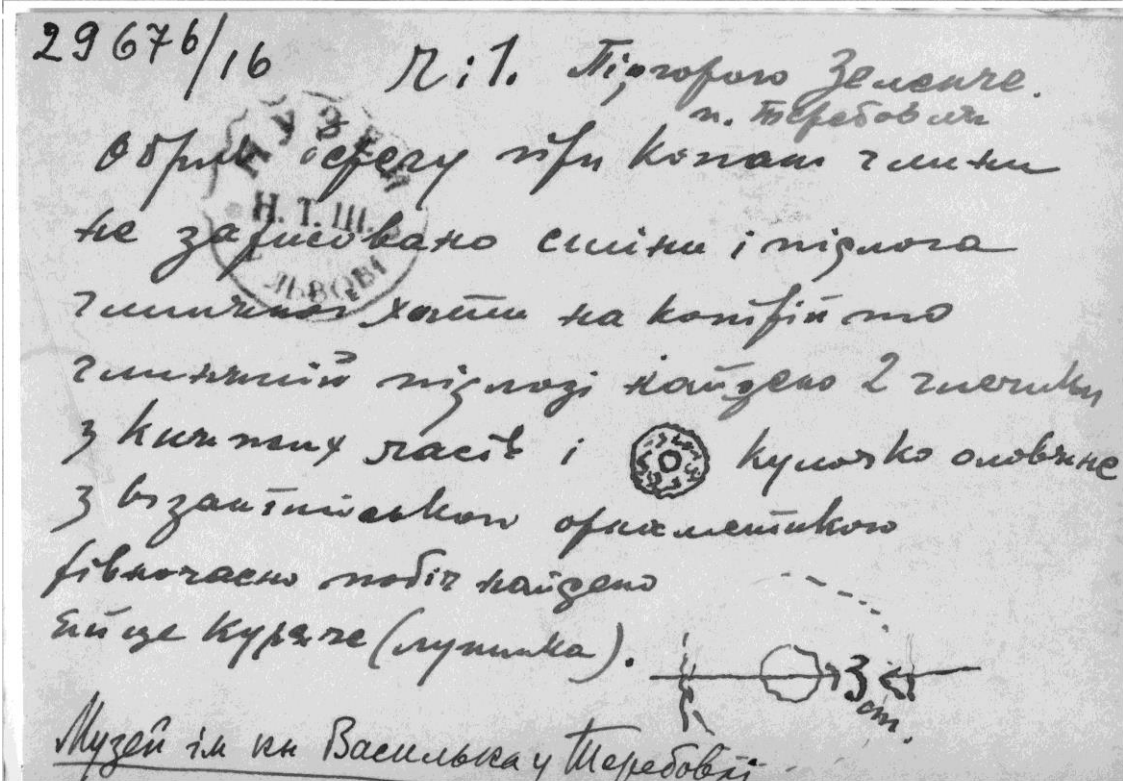 29676/16
Ч: 1. Підгороє Зеленче.
п. Теребовля
при копаню глини
не зарисовано стіни і підлога
глиняної хати на котрій то
глиняній підлозі найдено 2 глечики
з княжих часів і кулочко оловяне
з візантийською орнаментикою
рівночасно побіч найдено
Яйце Куряче (лупинка).
3 cm.
Музей ім кн Василька у Теребовлі
МУЗЕЙ
Н. Т. Ш.
ЛЬВОВІ